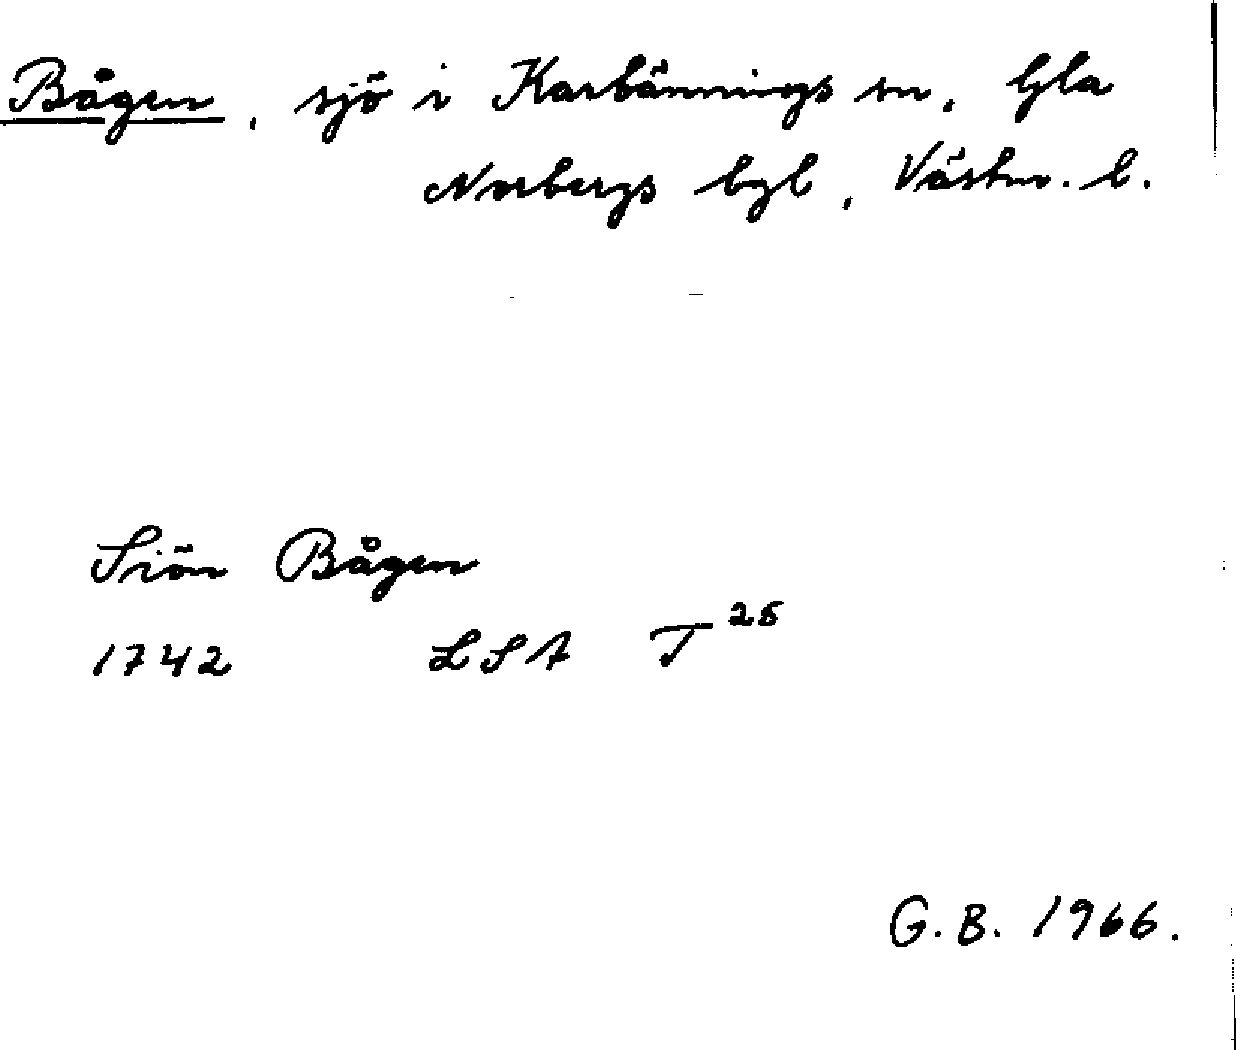 Bågen, sjö i Karbännings sn, Gla
Norbergs bgl, Västm. l.
Siön Bågen
1742 LSA T 25
G.B. 1966.